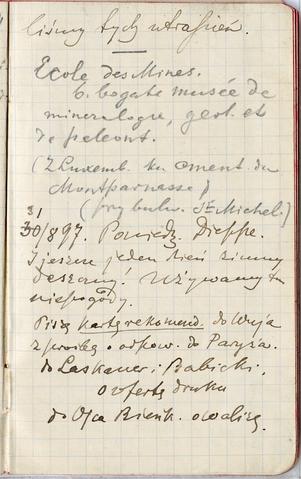 liśmy tych utrapień.
Ecole des Mines.
b. bogate musée de
mineralogie, geol. et
de paleont.
(Z Luxemb. ku cment. du
Montparnasse)
(przy bulw. St Michel.)
31
30/8 97. Poniedz. Dieppe.
I jeszcze jeden dzień zimny
deszczowy! Używamy tu
niepogody.
Piszę kartę rekomend. do Wuja
z prośbą o odpow. do Paryża.
do Laskauer i Babicki,
o ofertę druku
do Ojca Bienk. o walizę.